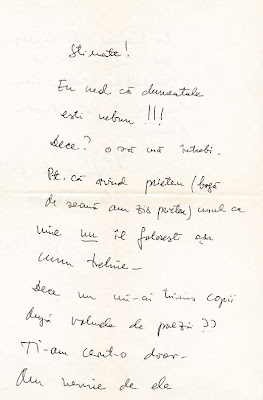 Stimate!
Eu văd că dumneatale
ești nebun!!!
Dece? o să mă întrebi.
Pt. că avînd prieten (bagă
de seamă am zis prieten) unul ca
mine nu îl folosești așa
cum trebuie –
Dece nu mi-ai trimis copii
după volumele de poezii??
Ți-am cerut-o doar.
Am nevoie de ele